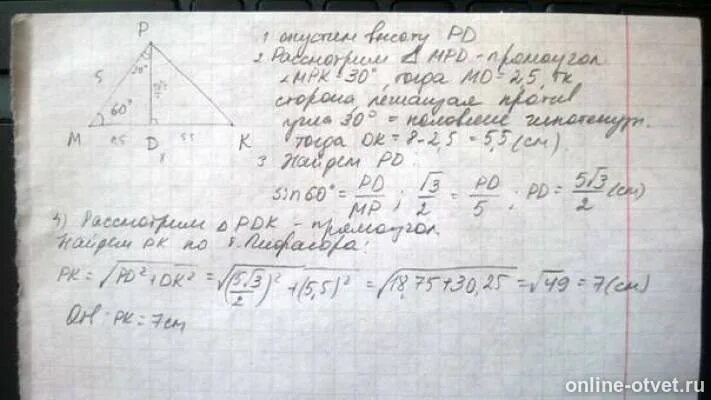 P
5
30°
5√3/2
60°
M 2,5 D 5,5 K
8
1 опустим высоту PD
2 Рассмотрим Δ MPD - прямоугол
∠MPK 30°, тогда MD = 2,5, тк
сторона лежащая против
угла 30° = половине гипотенузы.
тогда DK = 8-2,5 = 5,5 (см).
3 Найдем PD:
sin60° = PD/MP ; √3/2 = PD/5 ; PD = 5√3/2 (см)
4) Рассмотрим Δ PDK - прямоугол
Найдем PK по т. Пифагора:
PK = √PD² + DK² = √(5√3/2)² + (5,5)² = √18,75+30,25 = √49 = 7 (см)
Отв: PK = 7см
online-otvet.ru